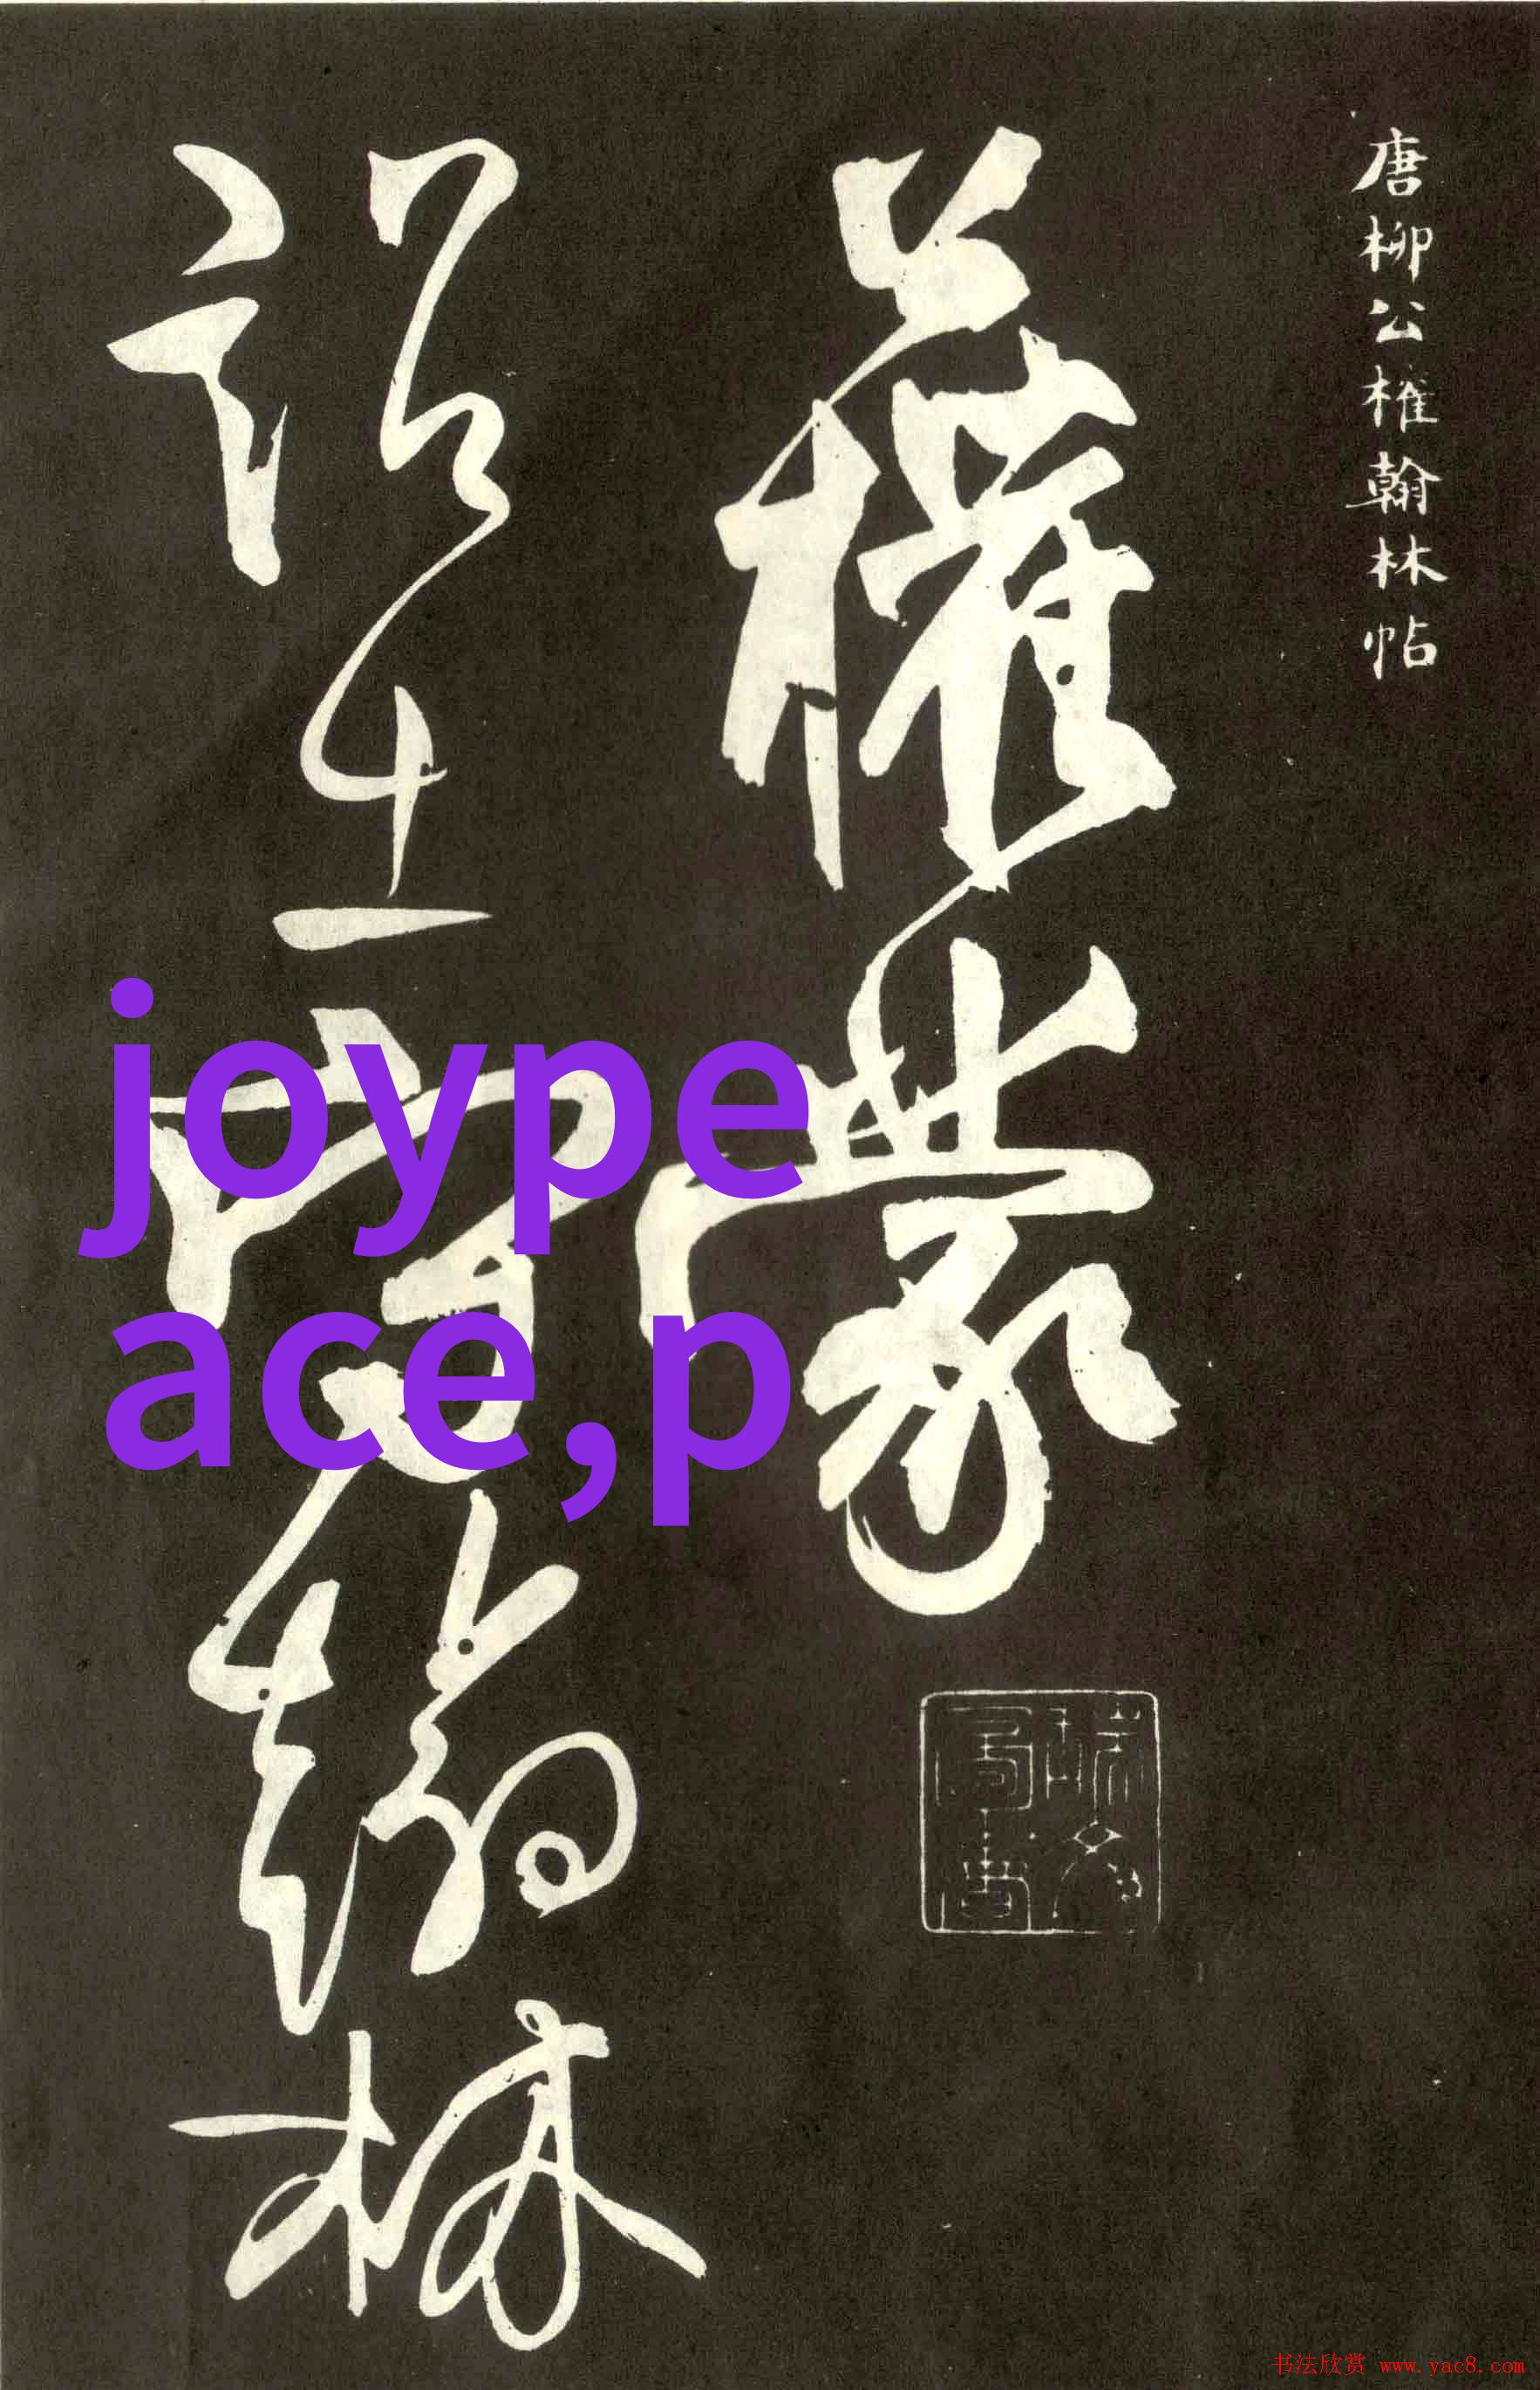 唐柳公權翰林帖
權蒙
詔出守翰林
joype
ace,p
书法欣赏 www.yac8.com